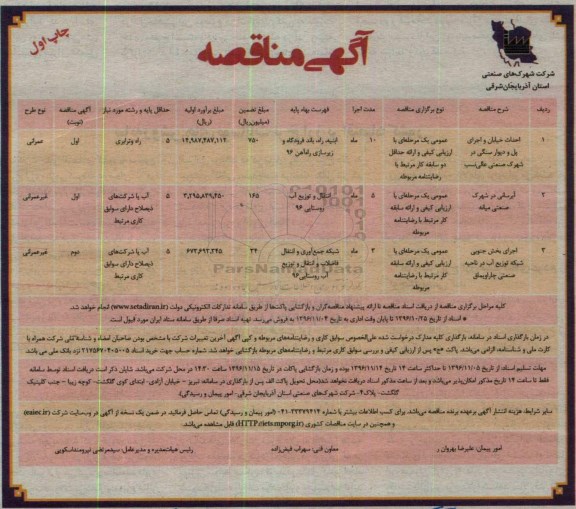 چاپ اول
آگهی مناقصه
شرکت شهرک‌های صنعتی
استان آذربایجان‌شرقی
ردیف شرح مناقصه نوع برگزاری مناقصه مدت اجرا فهرست بهاء پایه مبلغ تضمین (میلیون ریال) مبلغ برآورد اولیه (ریال) حداقل پایه و رشته مورد نیاز آگهی مناقصه (نوبت) نوع طرح
۱ احداث خیابان و اجرای ۱۰ ماه ابنیه، راه، باند فرودگاه و ۷۵۰ ۱۴,۹۸۷,۴۸۷,۱۱۲ ۵ راه و ترابری اول عمرانی
پل و دیوار سنگی در عمومی یک مرحله‌ای با ارزیابی کیفی و ارائه حداقل زیرسازی راه‌آهن ۹۶
شهرک صنعتی عالی‌نسب دو سابقه کار مرتبط با رضایتنامه مربوطه
۲ آبرسانی در شهرک عمومی یک مرحله‌ای با ۵ ماه انتقال و توزیع آب ۱۶۵ ۳,۲۹۵,۸۳۹,۴۵۰ ۵ آب یا شرکت‌های اول غیرعمرانی
صنعتی میانه ارزیابی کیفی و ارائه سابقه روستایی ۹۶ ذیصلاح دارای سوابق
کار مرتبط با رضایتنامه کاری مرتبط
مربوطه
۳ اجرای بخش جنوبی عمومی یک مرحله‌ای با ۳ ماه شبکه جمع‌آوری و انتقال ۳۴ ۶۷۳,۶۹۲,۳۴۵ ۵ آب یا شرکت‌های دوم غیرعمرانی
شبکه توزیع آب در ناحیه ارزیابی کیفی و ارائه سابقه فاضلاب و انتقال و توزیع ذیصلاح دارای سوابق
صنعتی چاراویماق کار مرتبط با رضایتنامه مربوطه آب روستایی ۹۶ کاری مرتبط
ParsNamadData
کلیه مراحل برگزاری مناقصه از دریافت اسناد مناقصه تا ارائه پیشنهاد مناقصه‌گران و بازگشایی پاکت‌ها از طریق سامانه تدارکات الکترونیکی دولت (www.setadiran.ir) انجام خواهد شد.
* اسناد از تاریخ ۱۳۹۶/۱۰/۲۵ تا پایان وقت اداری به تاریخ ۱۳۹۶/۱۱/۰۴ به فروش می‌رسد. تهیه اسناد صرفا از طریق سامانه ستاد ایران مورد قبول است.
در زمان بارگذاری اسناد در سامانه، بارگذاری کلیه مدارک درخواست شده علی‌الخصوص سوابق کاری و رضایتنامه‌های مربوطه و کپی آگهی آخرین تغییرات شرکت با مشخص بودن صاحبان امضاء و شناسائی شرکت همراه با
کارت ملی و شناسنامه، الزامی می‌باشد. پاکت «ج» پس از ارزیابی کیفی و بررسی سوابق کاری مرتبط و رضایتنامه‌های مربوطه بازگشایی خواهد شد. شماره حساب جهت خرید اسناد ۲۱۷۵۶۷۰۴۰۵۰۰۵ نزد بانک ملی می‌باشد
مهلت تسلیم اسناد از تاریخ ۱۳۹۶/۱۱/۰۵ تا حداکثر ساعت ۱۴ تاریخ ۱۳۹۶/۱۱/۱۴ بوده و زمان بازگشایی پاکات در تاریخ ۱۳۹۶/۱۱/۱۵ ساعت ۱۴:۳۰ در محل شرکت می‌باشد. شایان ذکر است دریافت اسناد توسط سامانه
فقط تا ساعت ۱۴ تاریخ مذکور امکان‌پذیر می‌باشد و بعد از ساعت مذکور اسناد دریافت نخواهد شد.(محل تحویل پاکت الف پس از بارگذاری در سامانه: تبریز – خیابان آزادی- ابتدای کوی گلگشت- کوچه زیبا – جنب کلینیک
گلگشت- پلاک۴- شرکت شهرک‌های صنعتی استان آذربایجان شرقی- امور پیمان و رسیدگی).
سایر شرایط: هزینه انتشار آگهی برعهده برنده مناقصه می‌باشد. برای کسب اطلاعات بیشتر با شماره (امور پیمان و رسیدگی) تماس حاصل فرمائید. در ضمن یک نسخه از آگهی در وب‌سایت شرکت (eaiec.ir)
و همچنین در سایت مناقصات کشوری (HTTP://iets.mporg.ir) قابل مشاهده می‌باشد.
امور پیمان: علیرضا بهروان ر معاون فنی: سهراب فیض‌زاده رئیس هیئت‌مدیره و مدیرعامل: سیدمرتضی نیرومنداسکویی